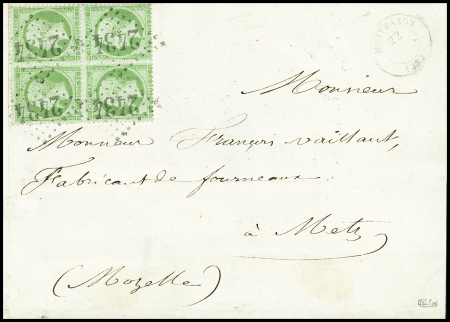 2434 2434
2434 2434
MONTBAZON
22
Monsieur
Monsieur François Vaillant,
Fabricant de fourneaux
à Metz
(Mozelle)